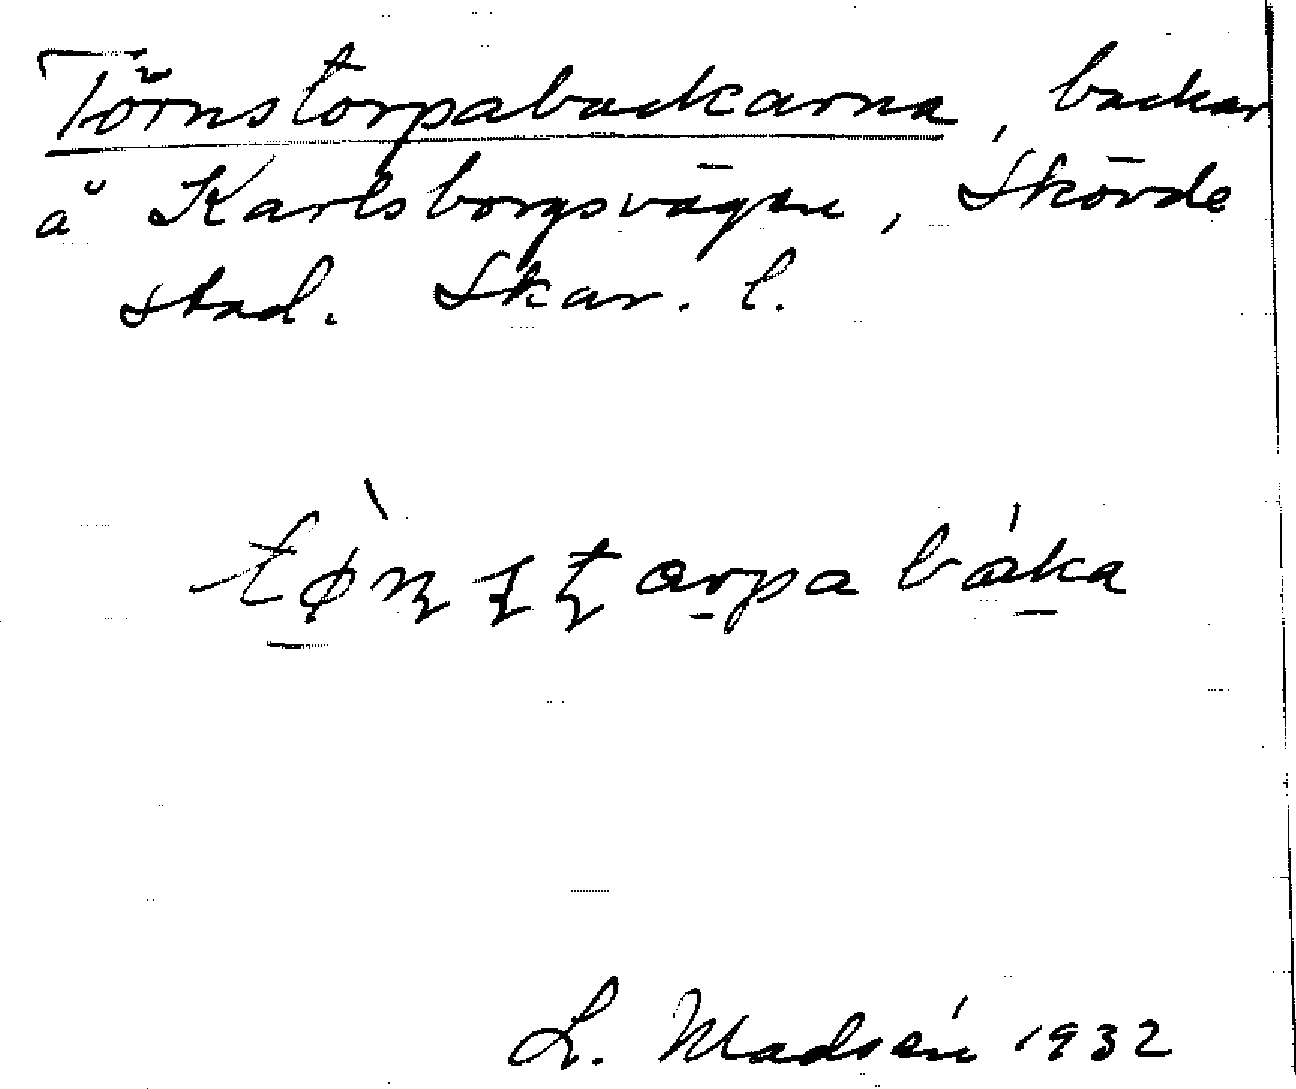 Törnstorpabackarna, backar
å Karlsborgsvägen, Skövde
stad. Skar. l.
tø̀ɳʂʈarpabáka
L. Madsén 1932